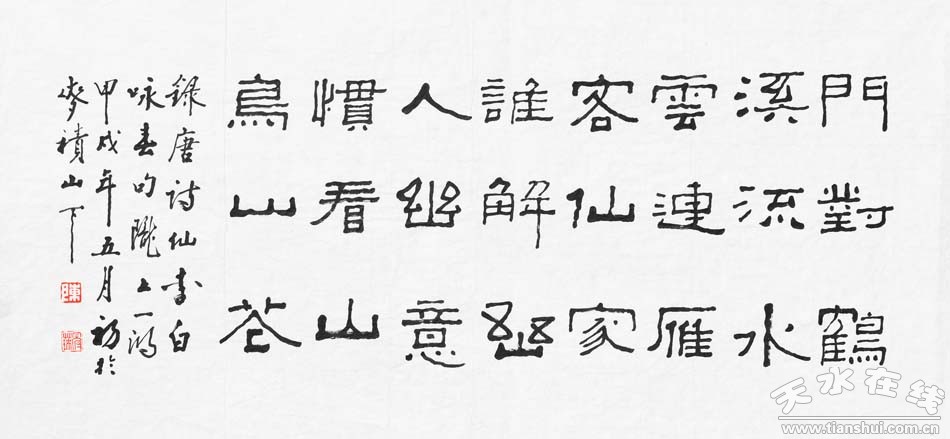 門對鶴
溪流水
雲連雁
客仙家
誰解幽
人幽意
慣看山
鳥山花
録唐詩仙李白
咏春句隴上一鴻
甲戌年五月初於
麥積山下
天水在线
www.tianshui.com.cn